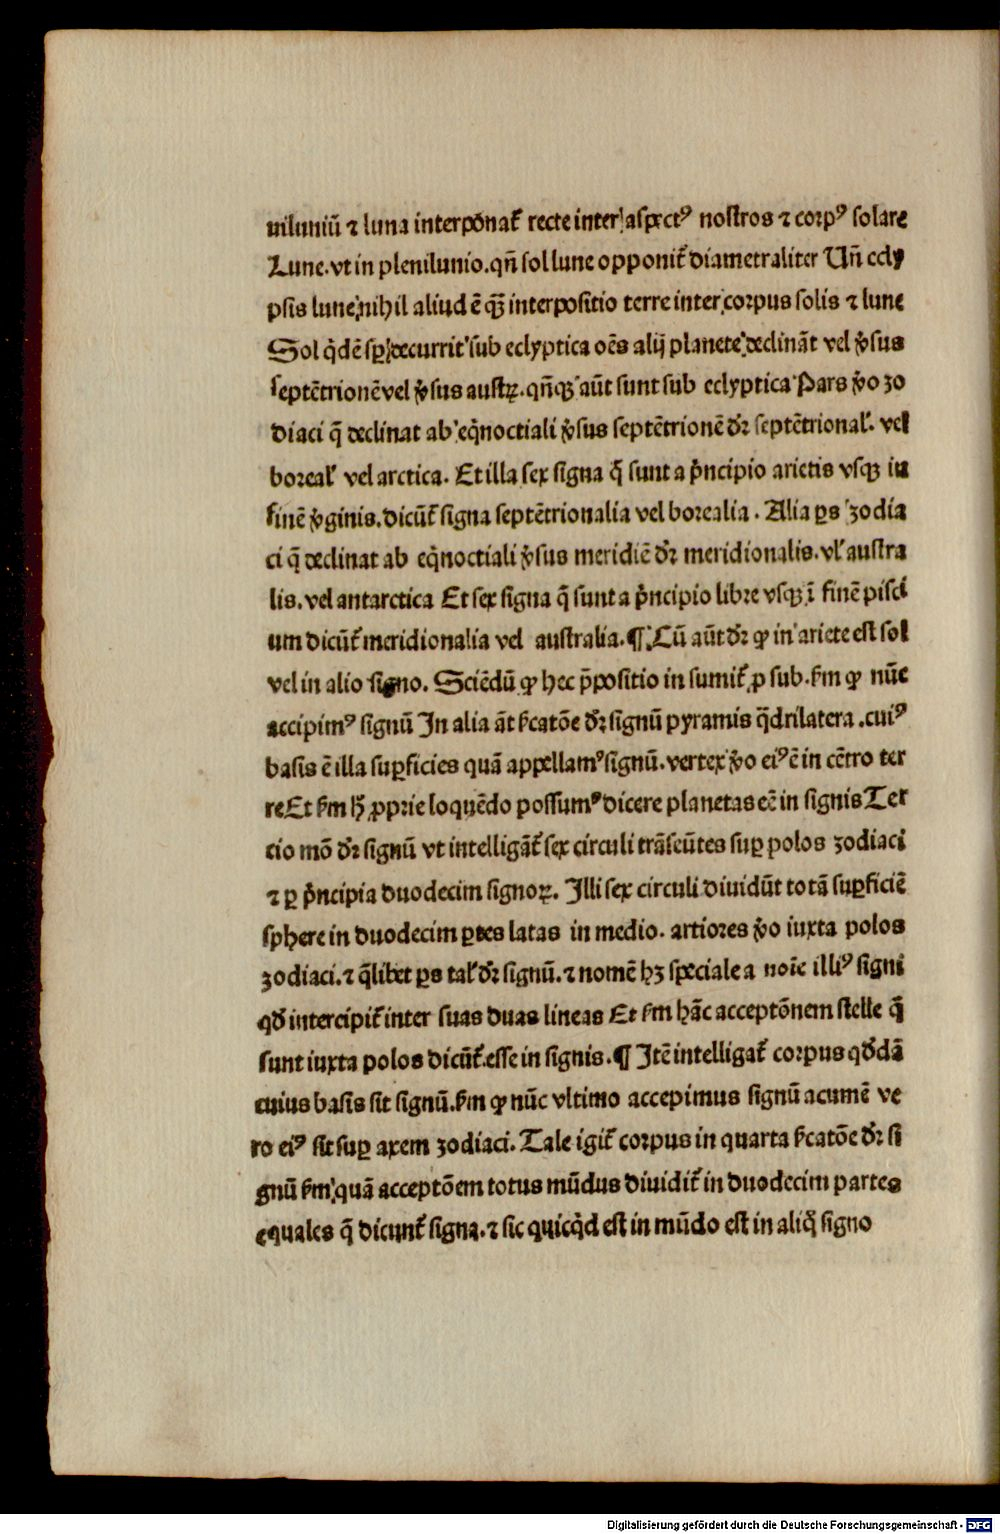 uiluniũ ⁊ luna interpõnat᷑ recte inter aspectꝰ nostros ⁊ corpꝰ solare
Lune. vt in plenilunio. qñ sol lune opponit᷑ diametraliter Uñ ecly
psis lune nihil aliud ẽ qꝫ̃ interpositio terre inter corpus solis ⁊ lune
Sol q̇dẽ sꝑ decurrit sub ecliptica oẽs alij planete declinãt vel ꝟsus
septẽtrionẽ vel ꝟsus austꝝ. qñqꝫ aũt sunt sub eclyptica Pars ꝟo zo
diaci q̃ declinat ab eq̇noctiali ꝟsus septẽtrionẽ dr̃ septẽtrional᷑. vel
boreal᷑ vel arctica. Et illa sex signa q̃ sunt a pͥncipio arietis vsqꝫ in
finẽ ꝟginis. dicũt᷑ signa septẽtrionalia vel borealia. Alia ꝑs zodia
ci q̃ declinat ab eq̇noctiali ꝟsus meridiẽ dr̃ meridionalis. vl᷑ austra
lis. vel antarctica Et sex signa q̃ sunt a pͥncipio libre vsqꝫ ĩ finẽ pisci
um dicũt᷑ meridionalia vel australia. ¶ Cũ aũt dr̃ ꝙ in ariete est sol
vel in alio signo. Sciẽdũ ꝙ hec p̃positio in sumit᷑ ꝓ sub. ẜm ꝙ nũc
accipimꝰ signũ In alia ãt ẜcatõe dr̃ signũ pyramis q̃drilatera. cuiꝰ
basis ẽ illa suꝑficies quã appellamꝰ signũ. vertex ꝟo eiꝰ ẽ in cẽtro ter
re Et ẜm ħ ꝓprie loquẽdo possumꝰ dicere planetas eẽ in signis Ter
cio mõ dr̃ signũ vt intelligãt᷑ sex circuli trãseũtes suꝑ polos zodiaci
⁊ ꝑ pͥncipia duodecim signoꝝ. Illi sex circuli diuidũt totã suꝑficiẽ
sphere in duodecim ꝑtes latas in medio. artiores ꝟo iuxta polos
zodiaci. ⁊ q̃libet ꝑs tal᷑ dr̃ signũ. ⁊ nomẽ hꝫ speciale a noĩe illiꝰ signi
qđ intercipit᷑ inter suas duas lineas Et ẜm hãc acceptõnem stelle q̃
sunt iuxta polos dicũt᷑ esse in signis. ¶ Itẽ intelligat᷑ corpus qđdã
cuius basis sit signũ. ẜm ꝙ nũc vltimo accepimus signũ acumẽ ve
ro eiꝰ sit suꝑ axem zodiaci. Tale igit᷑ corpus in quarta ẜcatõe dr̃ si
gnũ ẜm quã acceptõem totus mũdus diuidit᷑ in duodecim partes
equales q̃ dicunt᷑ signa. ⁊ sic quicq̇d est in mũdo est in aliq̊ signo
Digitalisierung gefördert durch die Deutsche Forschungsgemeinschaft - DFG